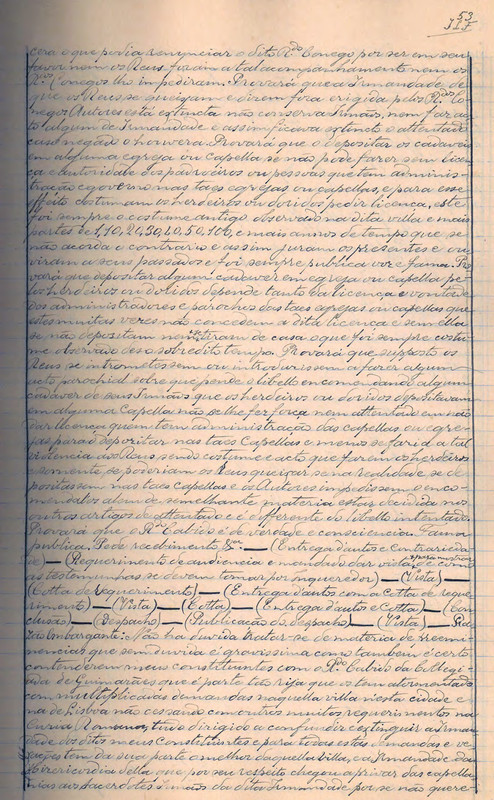 53
cera o que podia renunciar e dito Rdo Conego por ser em seu
favor nem os Reus foram a tal acompanhamento nem os
Rdos Conegos lho impediram. Provará que a Irmandade de
que os Reus se queixam e dizem fora erigida pelos Rdos Co-
negos Autores está extincta não conserva Irmãos, nem faz ac-
to algum de Irmandade e assim ficava extincto o attentado
caso negado o houvera. Provará que o depositar os cadaveres
em alguma egreja ou Capella se não pode fazer sem licen-
ça e autoridade dos parochos ou pessoas que têm adminis-
tração e governo nas taes egrejas ou capellas, e para esse
effeito costumam os herdeiros ou doridos pedir licença, este
foi sempre o costume antigo observado na dita villa e mais
partes de 1, 10, 20, 30, 40, 50, 100, e mais annos de tempo que se
não acorda o contrario e assim juram os presentes e ou-
viram a seus passados e foi sempre publica voz e fama. Pro-
vará que depositar algum cadaver em egreja ou capella pe-
los herdeiros ou doridos depende tanto da licença e vontade
dos administradores e parochos das taes egrejas ou capellas que
estes muitas vezes não concedem a dita licença e sem ella
se não depositam nem tiram de casa o que foi sempre costu-
me observado desde o sobredito tempo. Provará que supposto os
Reus se intromettessem ou introduzissem a fazer algum
acto parochial sobre que pende o libello encomendando algum
cadaver de seus Irmãos que os herdeiros ou doridos depositavam
em alguma Capella não se lhe fez força nem attentado em não
dar licença quem tem administração das capellas ou egre-
jas para o depositar nas taes Capellas e menos se faria a tal
violencia aos Reus, sendo costume e acto que fazem os herdeiros
e somente se poderiam os Reus queixar se na realidade se de-
positassem nas taes capellas e os Autores impedissem o enco-
mendalos alem de semelhante materia estar deduzida nos
outros artigos de attentado e é differente do libello intentado.
Provará que o Rdo Cabido é de verdade e consciencia. Fama
publica. Pede recebimento &ª. — (Entrega d'autos e contrarieda-
de) — (Requerimento de audiencia e mandado dar vista para mostrar e como
as testemunhas se devem tornar por inqueredor) — (Vista) —
(Cotta de requerimento) — (Entrega d'autos com a cotta de reque-
rimento) — (Vista) — (Cotta) — (Entrega d'autos e cotta) — (Con-
clusão) — (Despacho) — (Publicação do despacho) — (Vista) — Ra-
zões Embargante: Não ha duvida tratar-se de materia de preemi-
nencias que sem duvida é gravissima como tambem é certo
contenderem meus constituintes com o Rdo Cabido da Collegi-
ada de Guimarães que é parte tão rija que os tem atormentado
com multiplicadas demandas naquella villa n'esta cidade e
na de Lisboa não cessando com outros muitos requerimentos na
Curia Romana, tudo dirigido a confundir e extinguir a Irman-
dade dos ditos meus Constituintes e para todas estas demandas e ve-
xações tem da sua parte o melhor daquella villa, e a Irmandade da
Misericordia della que por seu respeito chegou a privar das capella-
nias aos sacerdotes Irmãos da dita Irmandade por se não quere-